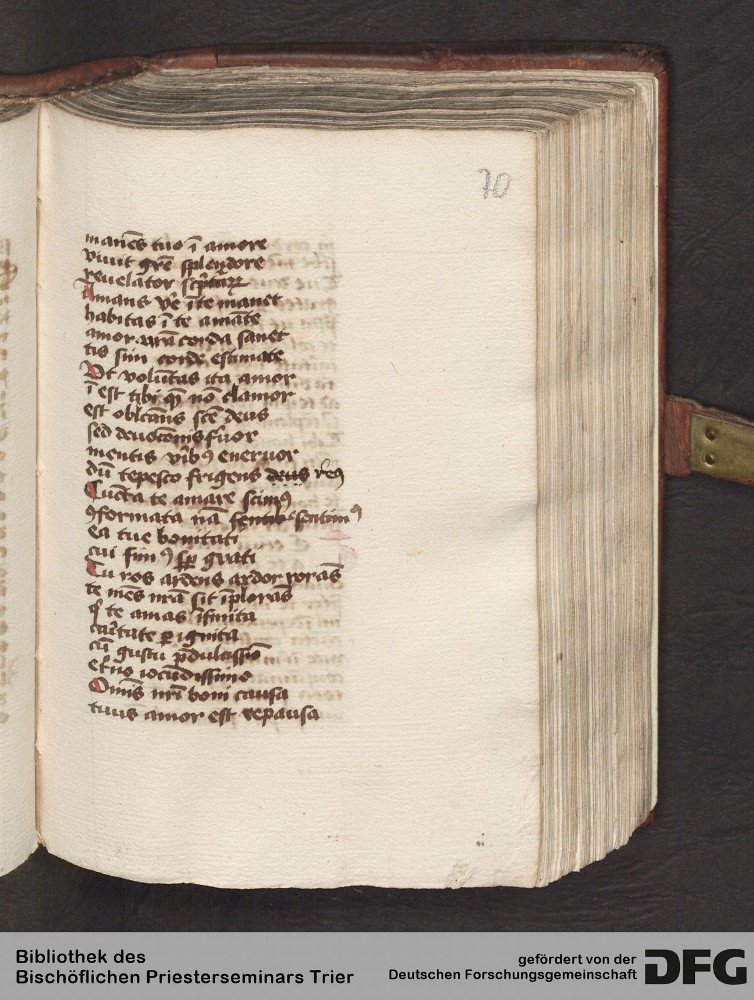 70
manēs tuo ī amore
viuit grē splendore
reuelator sc̄ptarꝝ
Amans vē īte manet
habitas ī te amāte
amor nrā corda sanet
tis sim corde estimate
Ut volūtas ita amor
ī est tibi qm̄ nō clamor
est oblcāns scē deus
sed deuocōnis furor
mentis vibꝰ eneruor
dū tepesco frigens deus reꝰ
Cuncta te amare scimꝰ
ꝯformata nā sentimꝰ
ea tue bonitati
cui simꝰ sꝑ grati
Tu ros ardens ardor roras
te mēs nrā sit īploras
qͥ te amas īfinita
caritate ꝑ ignita
cū gustu p̄dulcissīo
et̄no iocūdissimo
Omīs nrī boni causa
tuus amor est repausa
Bibliothek des
Bischöflichen Priesterseminars Trier
gefördert von der
Deutschen Forschungsgemeinschaft
DFG